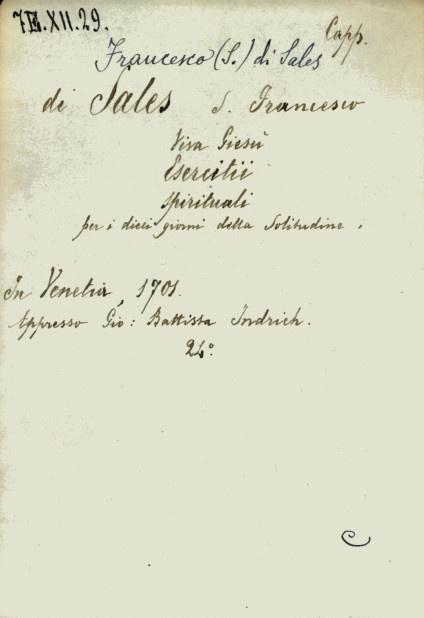 7E.XII.29.
Capp.
Francesco (S.) di Sales
di Sales S. Francesco
Viva Giesù
Esercitii
spirituali
per i dieci giorni della Solitudine.
In Venetia, 1701.
Appresso Gio: Battista Indrich.
24°.